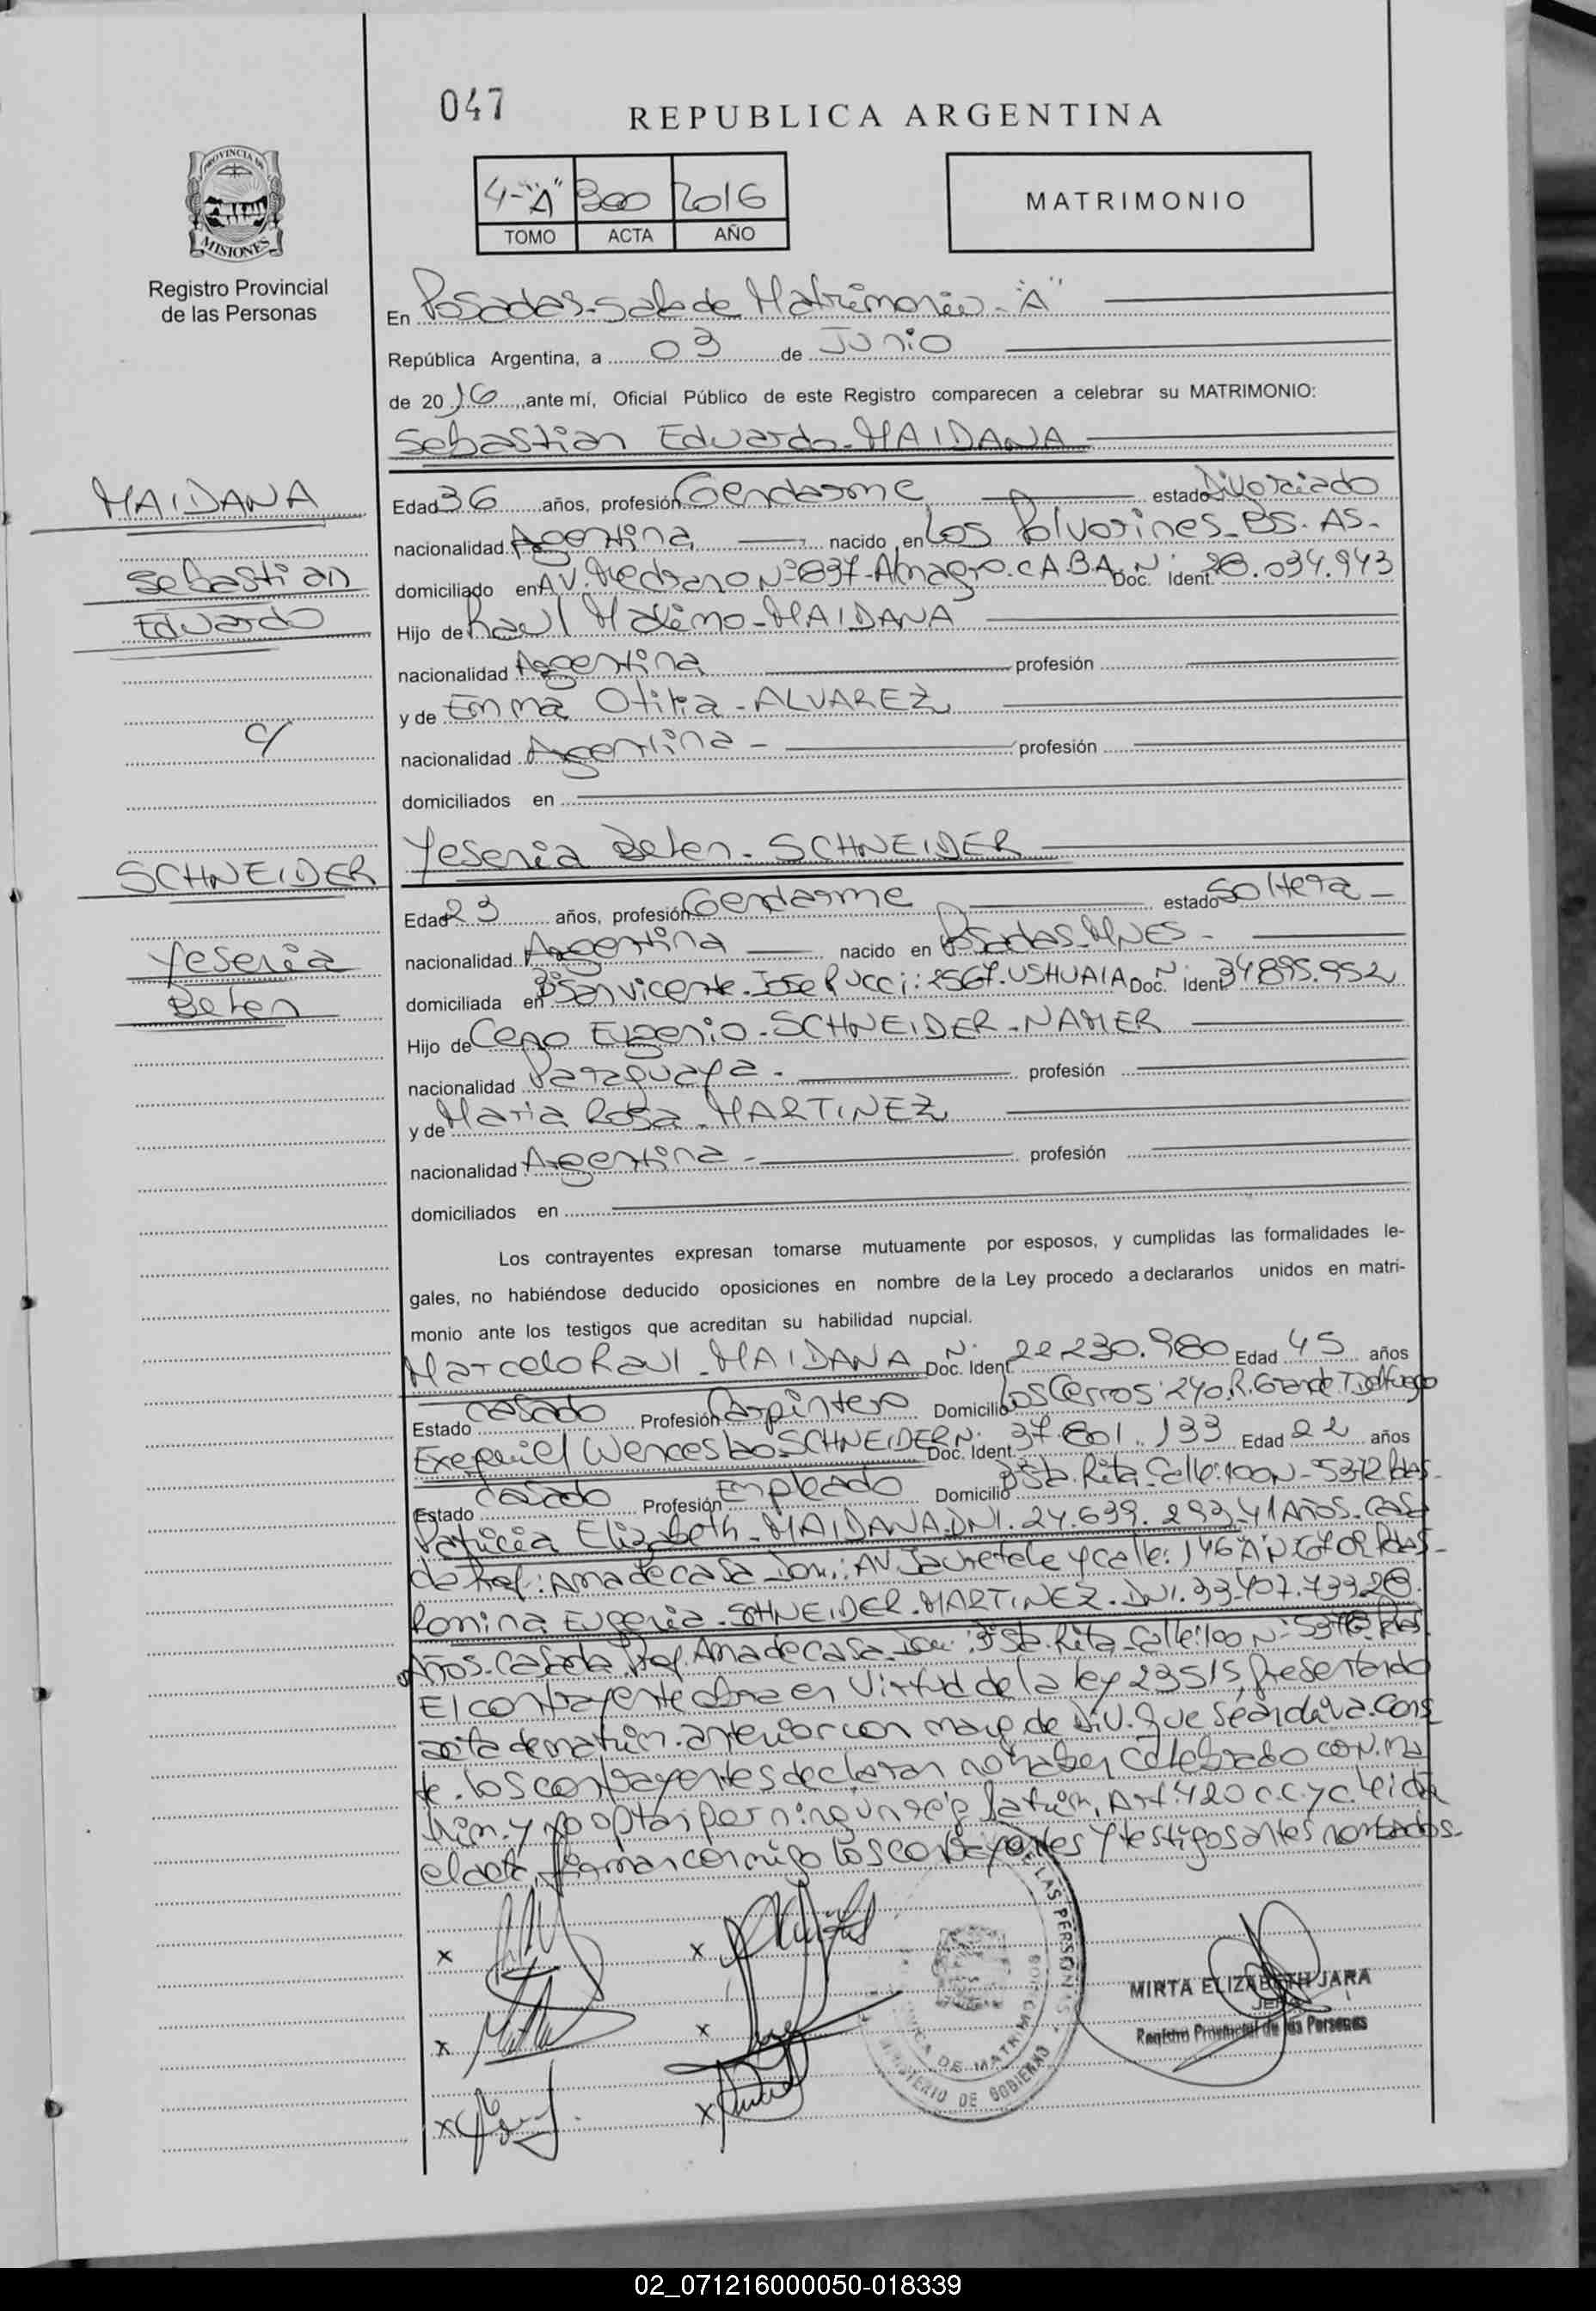 047
REPUBLICA ARGENTINA
4-"A" 300 2016
TOMO ACTA AÑO
MATRIMONIO
PROVINCIA DE
MISIONES
Registro Provincial
de las Personas
En Posadas-Sala de Matrimonios-"A"
República Argentina, a 03 de Junio
de 2016, ante mí, Oficial Público de este Registro comparecen a celebrar su MATRIMONIO:
Sebastian Eduardo-MAIDANA
MAIDANA
Sebastian
Eduardo
c/
SCHNEIDER
Yesenia
Belen
Edad 36 años, profesión Gendarme estado Divorciado
nacionalidad Argentina nacido en Los Polvorines-BS.AS-
domiciliado en AV. Medrano Nº 897-Almagro.CABA Doc. Ident. Nº 28.034.943
Hijo de Raul Maximo-MAIDANA
nacionalidad Argentina profesión
y de Emma Otilia-ALVAREZ
nacionalidad Argentina- profesión
domiciliados en
Yesenia Belen-SCHNEIDER
Edad 23 años, profesión Gendarme estado Soltera-
nacionalidad Argentina nacido en Posadas-MNES-
domiciliada en Bº San vicente-Jose Pucci: 2567-USHUAIA Doc. Ident. Nº 34.895.952
Hijo de Ceno Eugenio-SCHNEIDER-NAMER
nacionalidad Paraguaya- profesión
y de Maria Rosa-MARTINEZ
nacionalidad Argentina- profesión
domiciliados en
Los contrayentes expresan tomarse mutuamente por esposos, y cumplidas las formalidades le-
gales, no habiéndose deducido oposiciones en nombre de la Ley procedo a declararlos unidos en matri-
monio ante los testigos que acreditan su habilidad nupcial.
Marcelo Raul-MAIDANA Doc. Ident. Nº 22.230.980 Edad 45 años
Estado Casado Profesión Carpintero Domicilio Los Cerros: 240.R.Grande.T.delfuego
Exequiel Wenceslao SCHNEIDER Doc. Ident. Nº 37.801.133 Edad 22 años
Estado Casado Profesión Empleado Domicilio Bº Sta. Rita-Calle:100 Nº-5372 Pdas-
Patricia Elizabeth-MAIDANA-DNI.24.639.293-41 AÑOS-Casa
da Prof: Ama de casa-Dom: AV. Jauretche y calle: 146"A" Nº 6702 Pdas-
Romina Eugenia-SCHNEIDER-MARTINEZ-DNI.33.407.739.28
años-Casada Prof. Ama de casa-Dom: Bº Sta. Rita-Calle:100 Nº-5372-Pdas.
El contrayente obra en virtud de la ley 23515, presentando
acta de matrim. anterior con marg. de Div. que se archiva. Cons
te. los contrayentes declaran no haber celebrado conv. ma
trim. y no optar por ningún rég. Art. 420 c.c. y c. leida
el acta, firman conmigo los contrayentes y testigos antes nombrados-
x x
x x
x x
LAS PERSONAS
DE MATRIMONIOS
MINISTERIO DE GOBIERNO
MIRTA ELIZABETH JARA
JEFA
Registro Provincial de las Personas
02_071216000050-018339